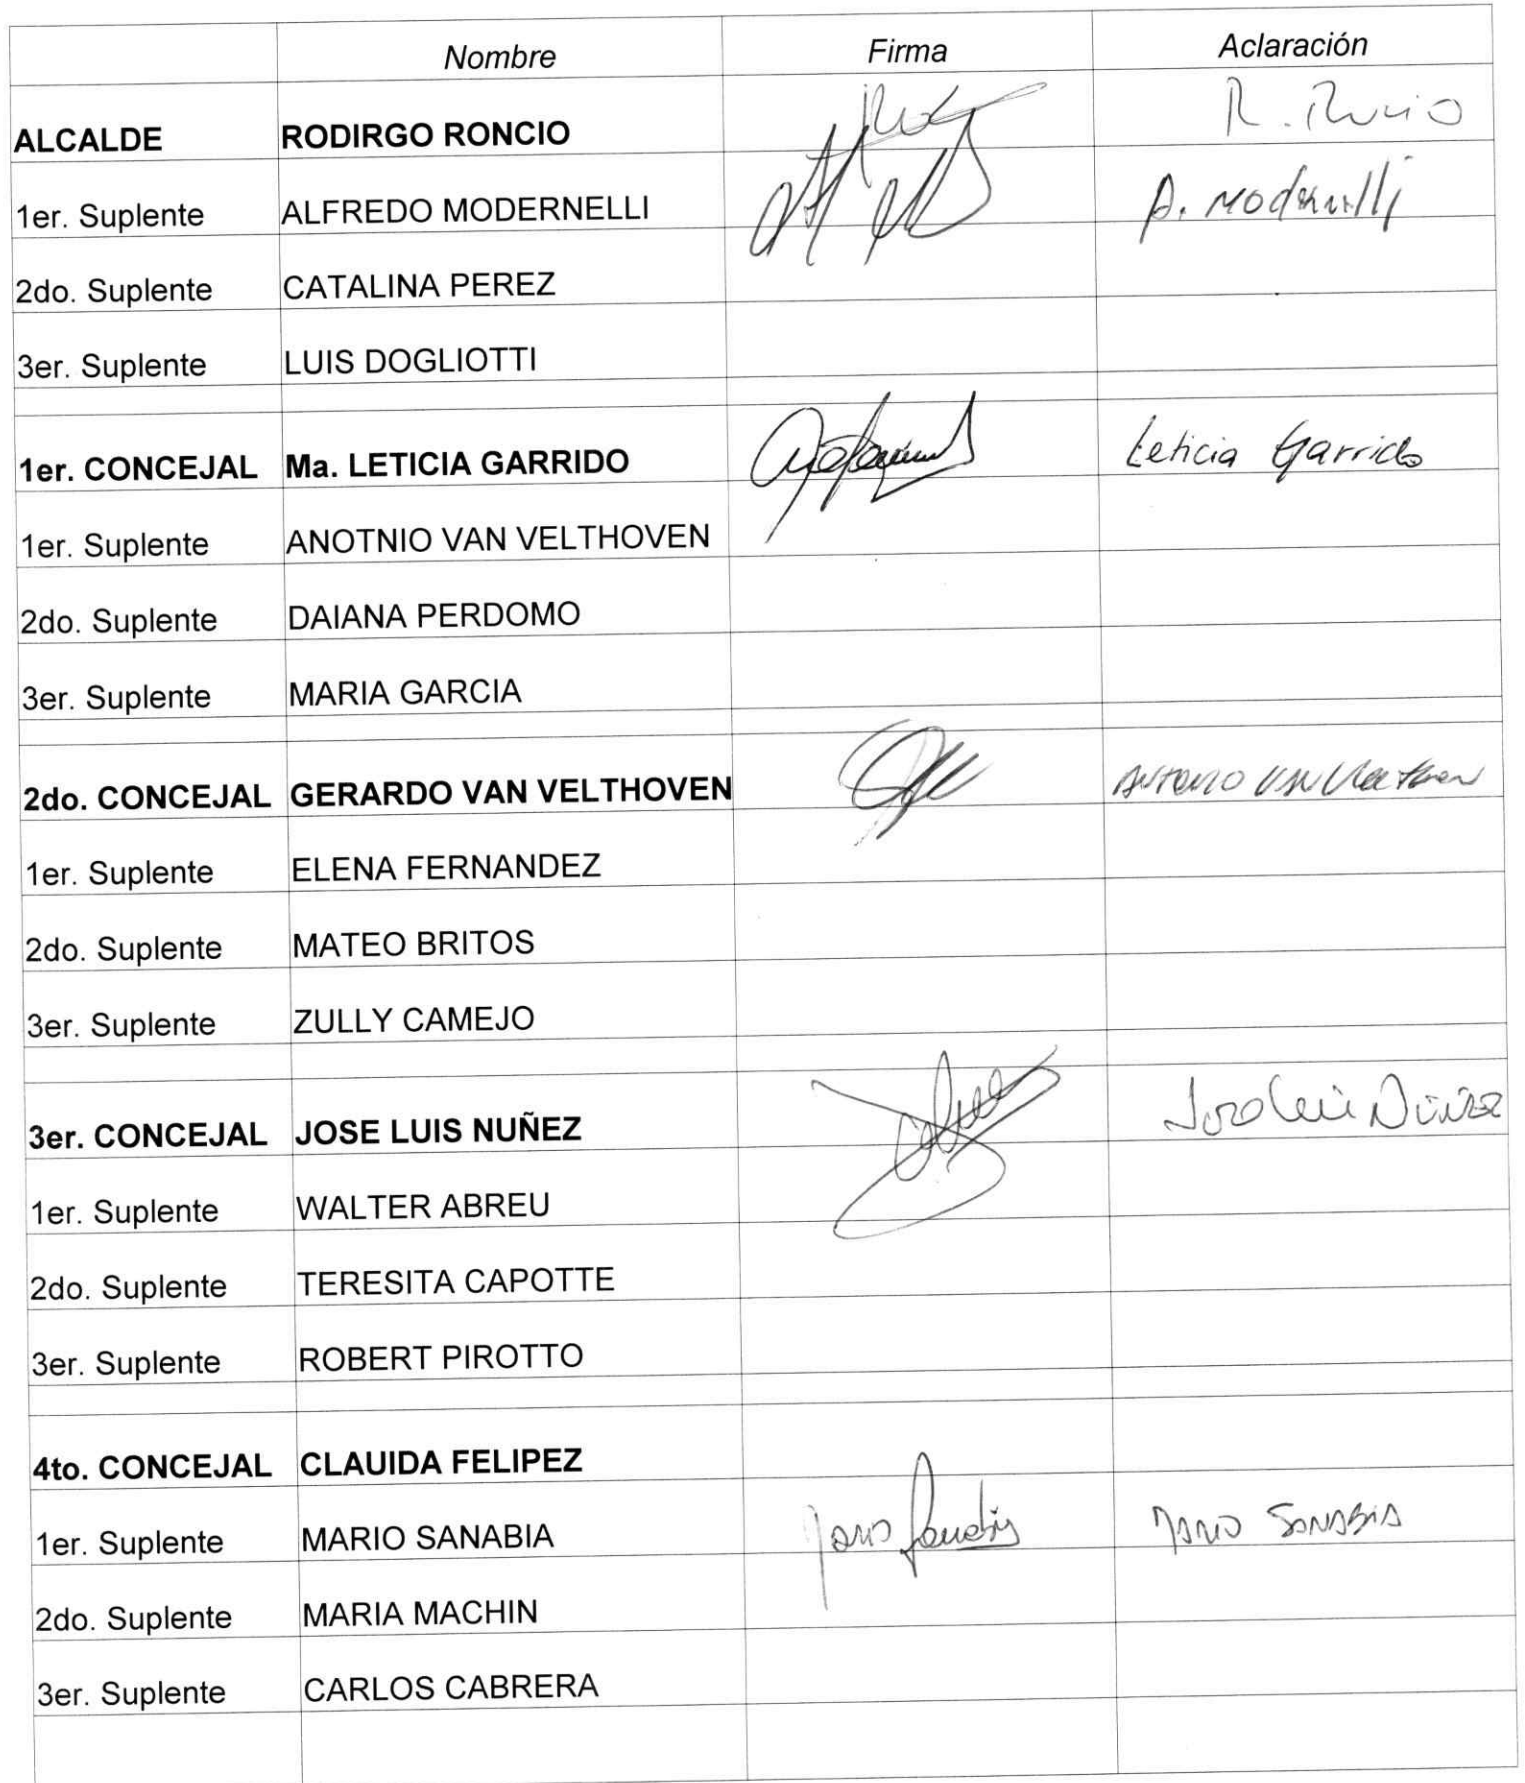 Nombre Firma Aclaración
ALCALDE RODIRGO RONCIO R. Roncio
1er. Suplente ALFREDO MODERNELLI A. Modernelli
2do. Suplente CATALINA PEREZ
3er. Suplente LUIS DOGLIOTTI
1er. CONCEJAL Ma. LETICIA GARRIDO Leticia Garrido
1er. Suplente ANOTNIO VAN VELTHOVEN
2do. Suplente DAIANA PERDOMO
3er. Suplente MARIA GARCIA
2do. CONCEJAL GERARDO VAN VELTHOVEN ANTONIO VAN Velthoven
1er. Suplente ELENA FERNANDEZ
2do. Suplente MATEO BRITOS
3er. Suplente ZULLY CAMEJO
3er. CONCEJAL JOSE LUIS NUÑEZ José Luis Núñez
1er. Suplente WALTER ABREU
2do. Suplente TERESITA CAPOTTE
3er. Suplente ROBERT PIROTTO
4to. CONCEJAL CLAUIDA FELIPEZ
1er. Suplente MARIO SANABIA Mario Sanabia MARIO SANABIA
2do. Suplente MARIA MACHIN
3er. Suplente CARLOS CABRERA